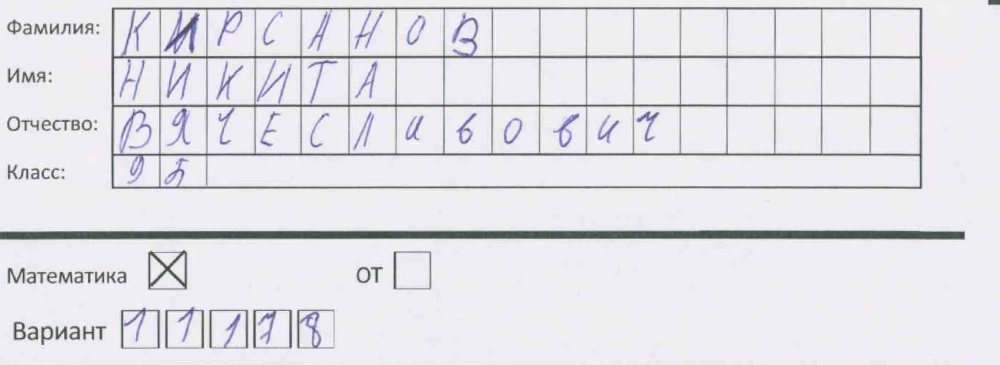 Фамилия: КИРСАНОВ
Имя: НИКИТА
Отчество: ВЯЧЕСЛавович
Класс: 9Б
Математика ☒ ОТ ☐
Вариант 11178